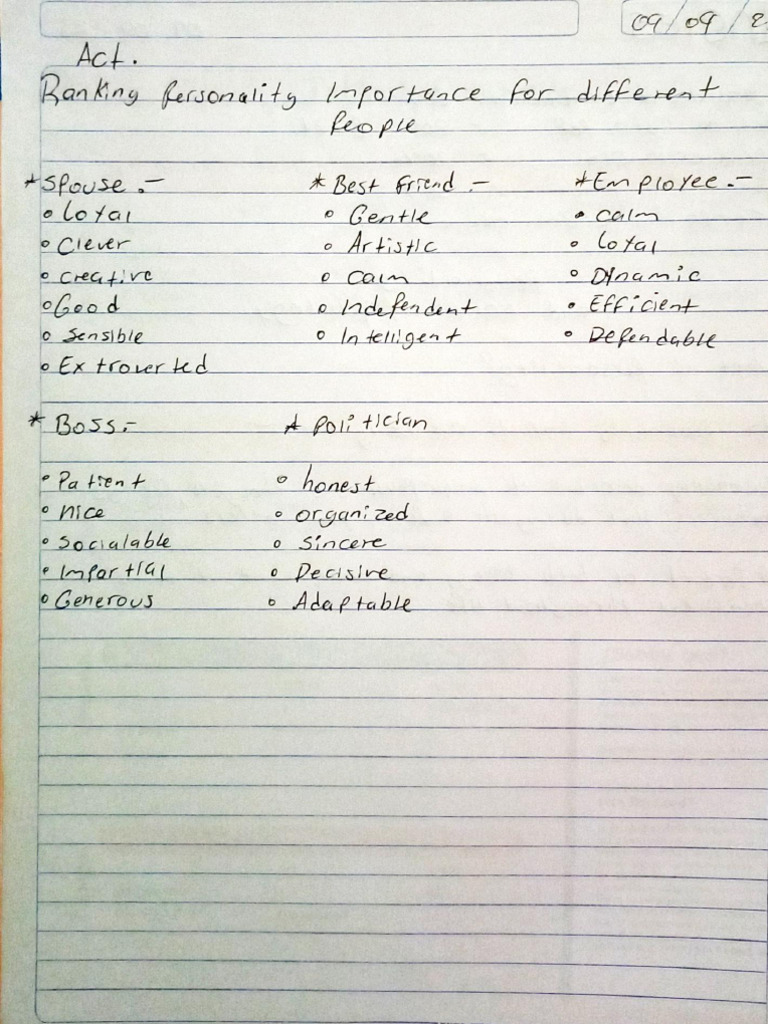 09/09/2
Act.
Ranking Personality Importance for different
People
*Spouse.- * Best friend.- *Employee.-
• Loyal • Gentle • calm
• Clever • Artistic • Loyal
• creative • calm • Dynamic
• Good • Independent • Efficient
• Sensible • Intelligent • Dependable
• Extroverted
* Boss.- * politician
• Patient • honest
• nice • organized
• Socialable • Sincere
• Impartial • Decisive
• Generous • Adaptable